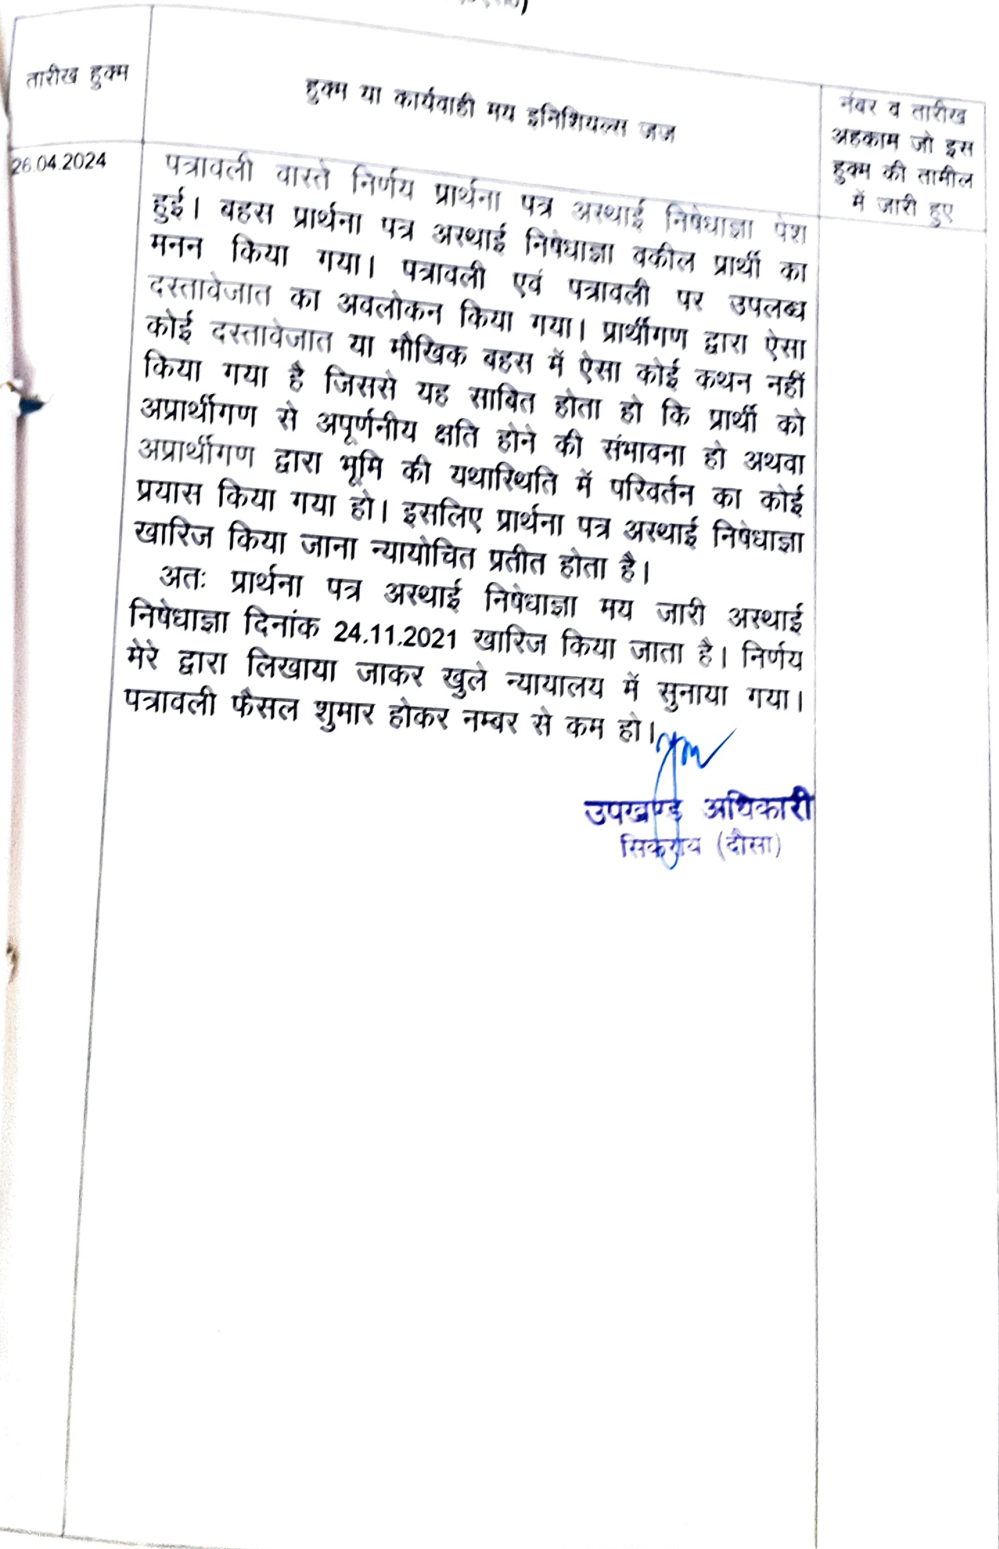 तारीख हुक्म
हुक्म या कार्यवाही मय इनिशियल्स जज
नंबर व तारीख
अहकाम जो इस
हुक्म की तामील
में जारी हुए
26.04.2024
पत्रावली वास्ते निर्णय प्रार्थना पत्र अस्थाई निषेधाज्ञा पेश
हुई। बहस प्रार्थना पत्र अस्थाई निषेधाज्ञा वकील प्रार्थी का
मनन किया गया। पत्रावली एवं पत्रावली पर उपलब्ध
दस्तावेजात का अवलोकन किया गया। प्रार्थीगण द्वारा ऐसा
कोई दस्तावेजात या मौखिक बहस में ऐसा कोई कथन नहीं
किया गया है जिससे यह साबित होता हो कि प्रार्थी को
अप्रार्थीगण से अपूर्णनीय क्षति होने की संभावना हो अथवा
अप्रार्थीगण द्वारा भूमि की यथास्थिति में परिवर्तन का कोई
प्रयास किया गया हो। इसलिए प्रार्थना पत्र अस्थाई निषेधाज्ञा
खारिज किया जाना न्यायोचित प्रतीत होता है।
अतः प्रार्थना पत्र अस्थाई निषेधाज्ञा मय जारी अस्थाई
निषेधाज्ञा दिनांक 24.11.2021 खारिज किया जाता है। निर्णय
मेरे द्वारा लिखाया जाकर खुले न्यायालय में सुनाया गया।
पत्रावली फैसल शुमार होकर नम्बर से कम हो।
उपखण्ड अधिकारी
सिकराय (दौसा)